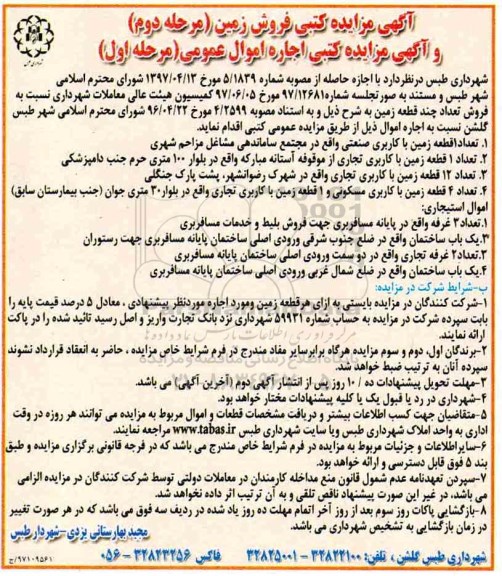 آگهی مزایده کتبی فروش زمین (مرحله دوم)
و آگهی مزایده کتبی اجاره اموال عمومی(مرحله اول)
شهرداری طبس درنظردارد با اجازه حاصله از مصوبه شماره ۵/۱۸۳۹ مورخ ۱۳۹۷/۰۴/۱۳ شورای محترم اسلامی
شهر طبس و مستند به صور تجلسه شماره۹۷/۱۲۶۸۱ مورخ ۹۷/۰۶/۰۵ کمیسیون هیئت عالی معاملات شهرداری نسبت به
فروش تعداد چند قطعه زمین به شرح ذیل و به استناد مصوبه ۴/۲۵۹۹ مورخ ۹۶/۰۴/۲۲ شورای محترم اسلامی شهر طبس
گلشن نسبت به اجاره اموال ذیل از طریق مزایده عمومی کتبی اقدام نماید.
۱. تعداد۱قطعه زمین با کاربری صنعتی واقع در مجتمع ساماندهی مشاغل مزاحم شهری
۲. تعداد ۱ قطعه زمین با کاربری تجاری از موقوفه آستانه مبارکه واقع در بلوار ۱۰۰ متری حرم جنب دامپزشکی
۳. تعداد ۱۲ قطعه زمین با کاربری تجاری واقع در شهرک رضوانشهر، پشت پارک جنگلی
۴. تعداد ۴ قطعه زمین با کاربری مسکونی و ۱ قطعه زمین با کاربری تجاری واقع در بلوار۳۰ متری جوان (جنب بیمارستان سابق)
اموال استیجاری:
۱.تعداد۳ غرفه واقع در پایانه مسافربری جهت فروش بلیط و خدمات مسافربری
۳.یک باب ساختمان واقع در ضلع جنوب شرقی ورودی اصلی ساختمان پایانه مسافربری جهت رستوران
۳.تعداد۲ غرفه تجاری واقع در دو سمت ورودی اصلی ساختمان پایانه مسافربری
۴.یک باب ساختمان واقع در ضلع شمال غربی ورودی اصلی ساختمان پایانه مسافربری
ب-شرایط شرکت در مزایده:
۱-شرکت کنندگان در مزایده بایستی به ازای هرقطعه زمین ومورد اجاره موردنظر پیشنهادی ، معادل ۵ درصد قیمت پایه را
بابت سپرده شرکت در مزایده به حساب شماره ۵۹۹۳۱ شهرداری نزد بانک تجارت واریز و اصل رسید تائید شده را در پاکت
ارائه نمایند.
۲-برندگان اول، دوم و سوم مزایده هرگاه برابرسایر مفاد مندرج در فرم شرایط خاص مزایده ، حاضر به انعقاد قرارداد نشوند
سپرده آنان به ترتیب ضبط خواهد شد.
۳-مهلت تحویل پیشنهادات ده / ۱۰ روز پس از انتشار آگهی دوم (آخرین آگهی) می باشد.
۴-شهرداری در رد یا قبول یک یا کلیه پیشنهادات مختار خواهد بود.
۵-متقاضیان جهت کسب اطلاعات بیشتر و دریافت مشخصات قطعات و اموال مربوط به مزایده می توانند هر روزه در وقت
اداری به واحد املاک شهرداری طبس ویا سایت شهرداری طبس www.tabas.ir مراجعه نمایند.
۶-سایراطلاعات و جزئیات مربوط به مزایده در فرم شرایط خاص مندرج می باشد که در فرجه قانونی برگزاری مزایده و طبق
بند ۵ فوق قابل دسترسی و ارائه خواهد بود.
۷-سپردن تعهدنامه عدم شمول قانون منع مداخله کارمندان در معاملات دولتی توسط شرکت کنندگان در مزایده الزامی
می باشد، در غیر این صورت پیشنهاد ناقص تلقی و به آن ترتیب اثر داده نخواهد شد.
۸-بازگشایی پاکات روز سوم بعد از روز آخر اتمام مهلت ده روز یاد شده در ردیف سه فوق می باشد که در هر صورت تغییر
در زمان بازگشایی به تشخیص شهرداری می باشد.
مجید بهارستانی یزدی-شهردار طبس
شهرداری طبس گلشن ، تلفن: ۳۲۸۲۲۱۰۰ - ۳۲۸۲۵۰۰۱ فاکس ۳۲۸۲۳۲۵۶ - ۰۵۶
۹۷۱۰۹۵۶۱/خ